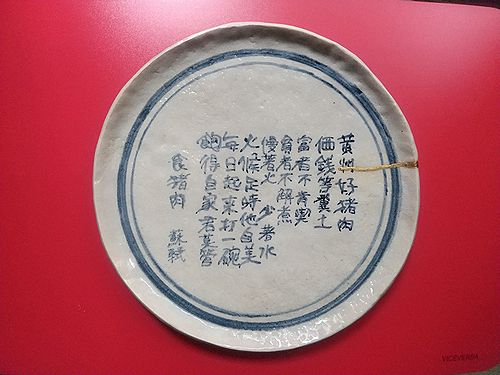 黄州好猪肉
価銭等糞土
富者不肯喫
貧者不解煮
慢著火 少著水
火候足時他自美
毎日起来打一碗
飽得自家君莫管
食猪肉 蘇軾
VICEVERSA